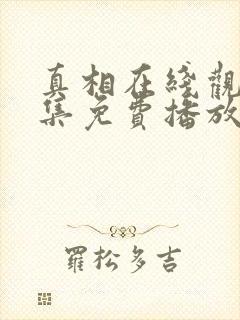 真相在綫觀
集免費播放
羅松多吉